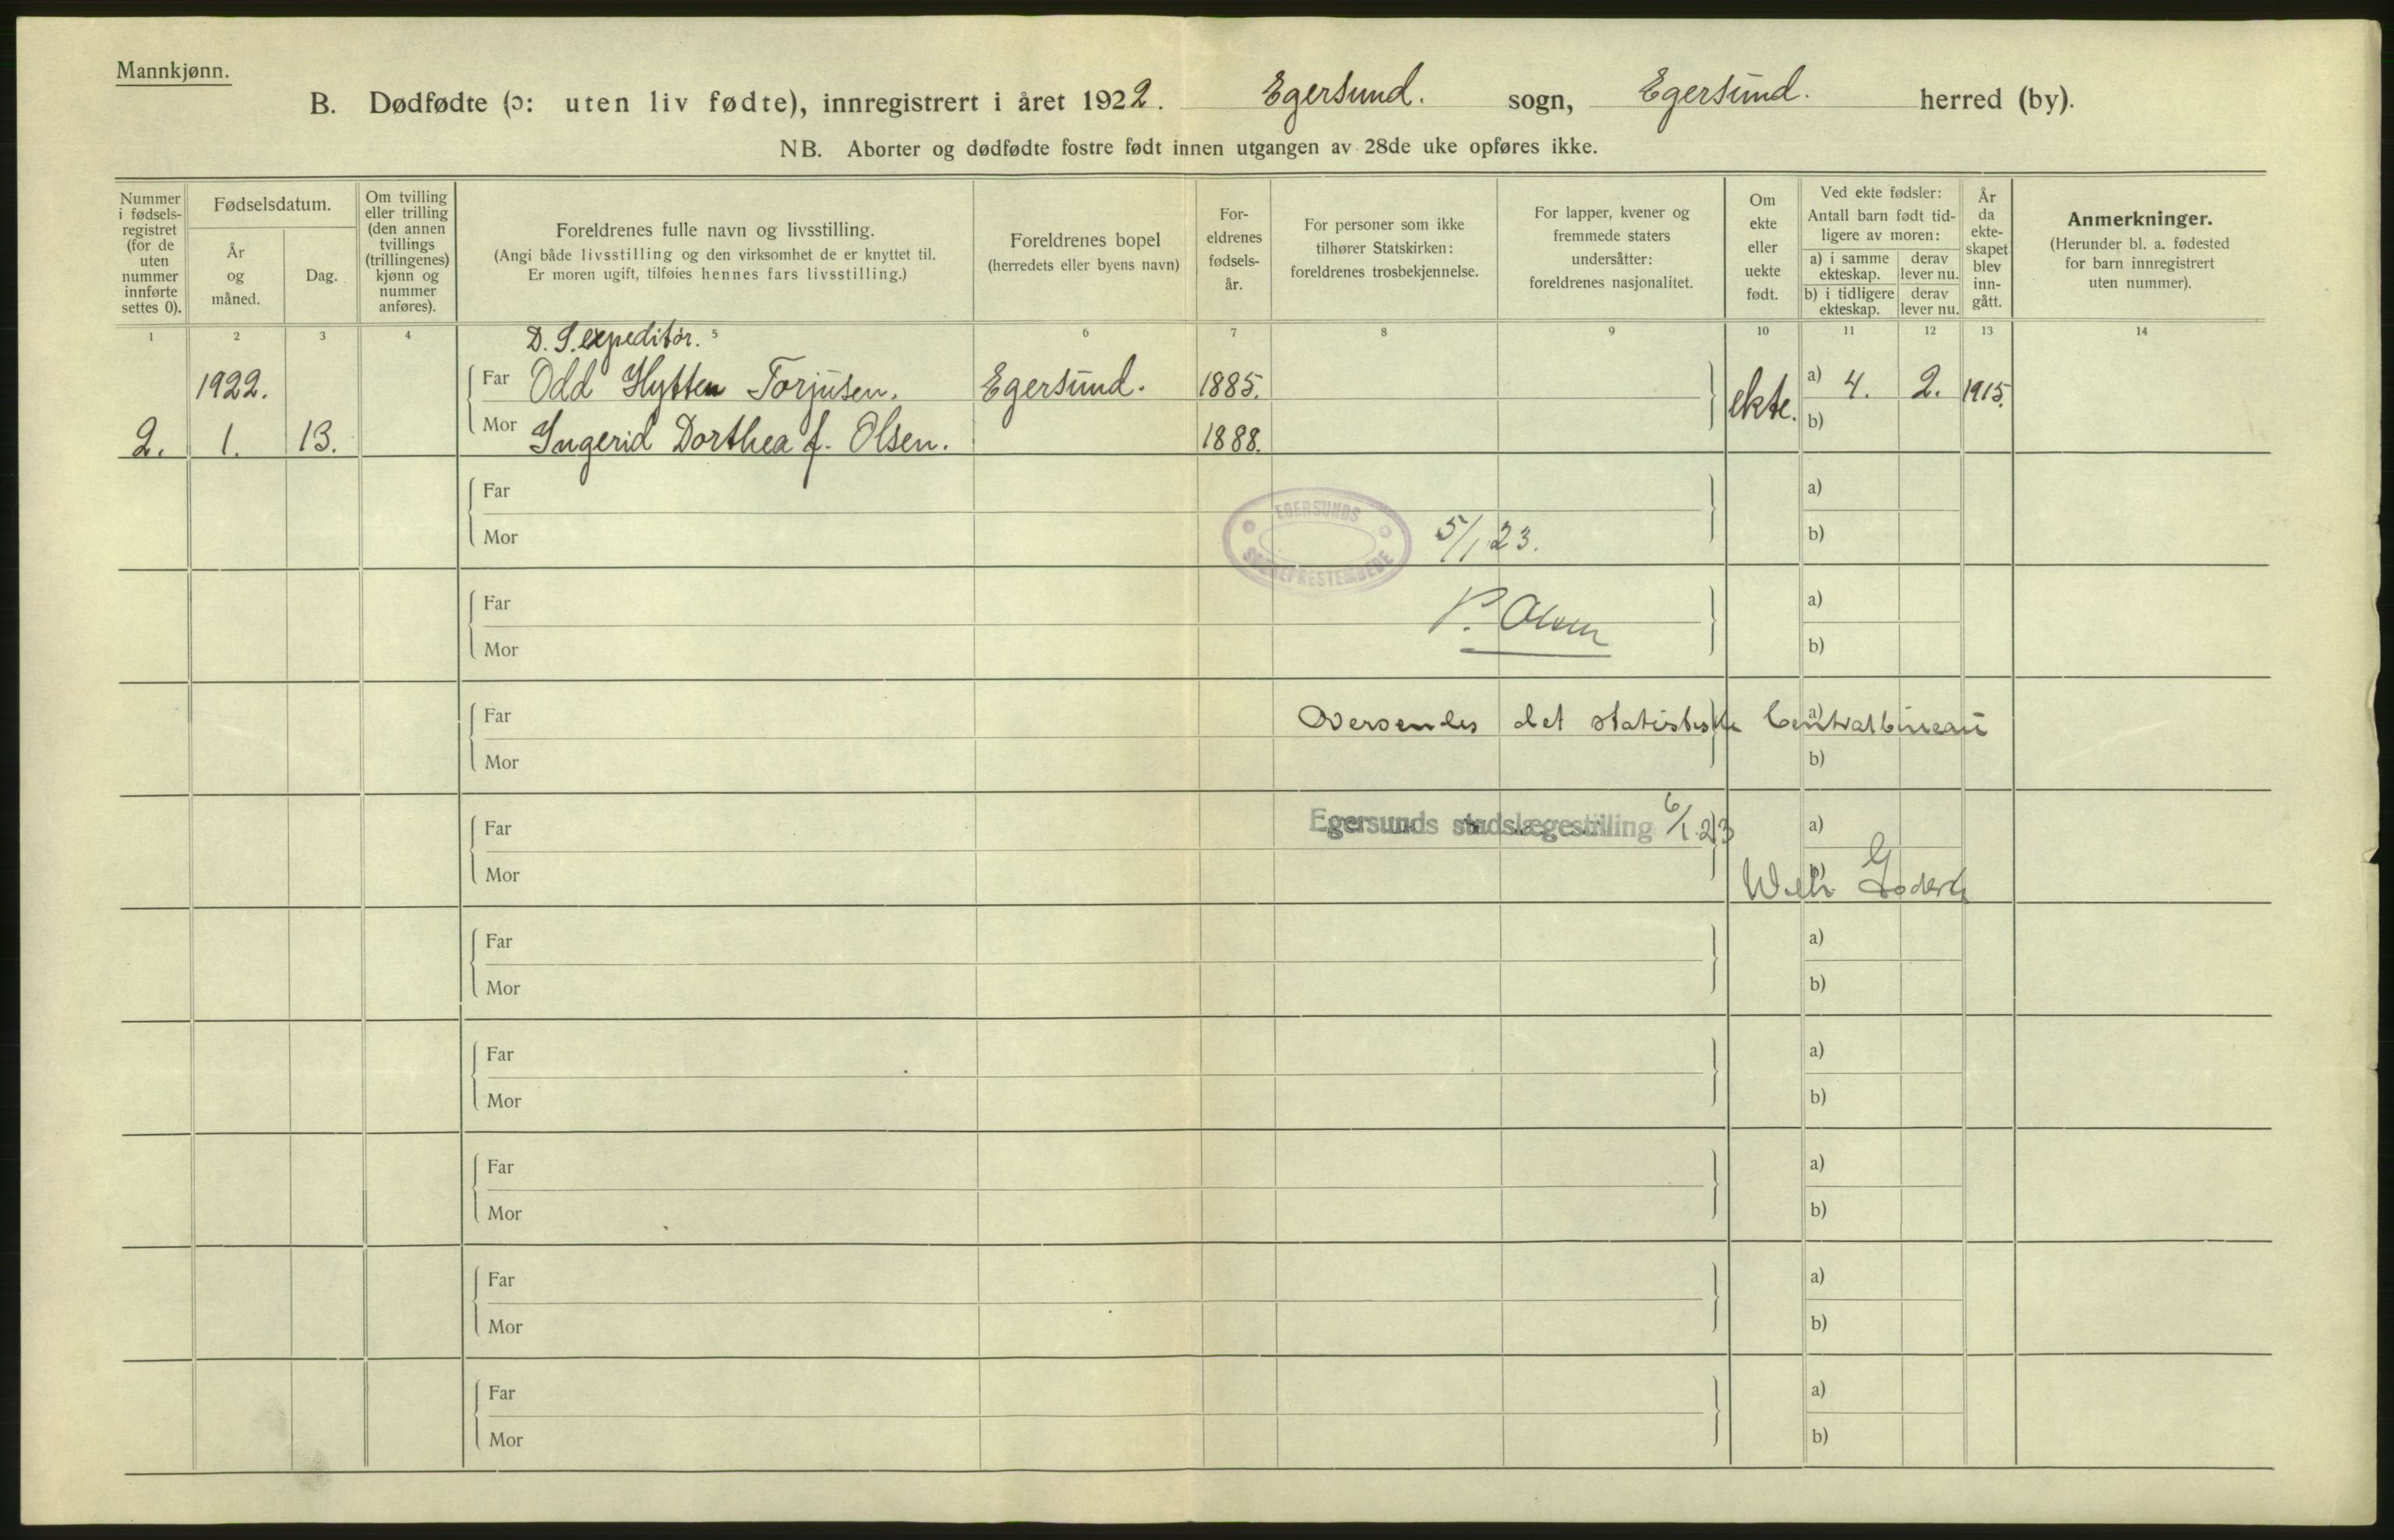 Mannkjønn.
B. Dødfødte (ɔ: uten liv fødte), innregistrert i året 1922. Egersund. sogn, Egersund. herred (by).
NB. Aborter og dødfødte fostre født innen utgangen av 28de uke opføres ikke.
Nummer i fødsels-registret (for de uten nummer innførte settes 0).
Fødselsdatum.
År og måned.
Dag.
Om tvilling eller trilling (den annen tvillings (trillingenes) kjønn og nummer anføres).
Foreldrenes fulle navn og livsstilling.
(Angi både livsstilling og den virksomhet de er knyttet til.
Er moren ugift, tilføies hennes fars livsstilling.)
Foreldrenes bopel
(herredets eller byens navn)
For-eldrenes fødsels-år.
For personer som ikke tilhører Statskirken: foreldrenes trosbekjennelse.
For lapper, kvener og fremmede staters undersåtter: foreldrenes nasjonalitet.
Om ekte eller uekte født.
Ved ekte fødsler:
Antall barn født tid-ligere av moren:
a) i samme ekteskap.
derav lever nu.
b) i tidligere ekteskap.
derav lever nu.
År da ekte-skapet blev inn-gått.
Anmerkninger.
(Herunder bl. a. fødested for barn innregistrert uten nummer).
1 2 3 4 5 6 7 8 9 10 11 12 13 14
D. S. expeditør.
1922. Far Odd Hytten Torjusen. Egersund. 1885. ekte. a) 4. 2. 1915.
2. 1. 13. Mor Ingerid Dorthea f. Olsen. 1888. b)
Far a)
EGERSUNDS SOGNEPRESTEMBEDE
5/1 23.
Mor b)
Far a)
P. Olsen
Mor b)
Far Oversendes det statistiske Centralbureau a)
Mor b)
Far Egersunds stadslægestilling 6/1 23 a)
Mor b)
Far a)
Mor b)
Far a)
Mor b)
Far a)
Mor b)
Far a)
Mor b)
Far a)
Mor b)